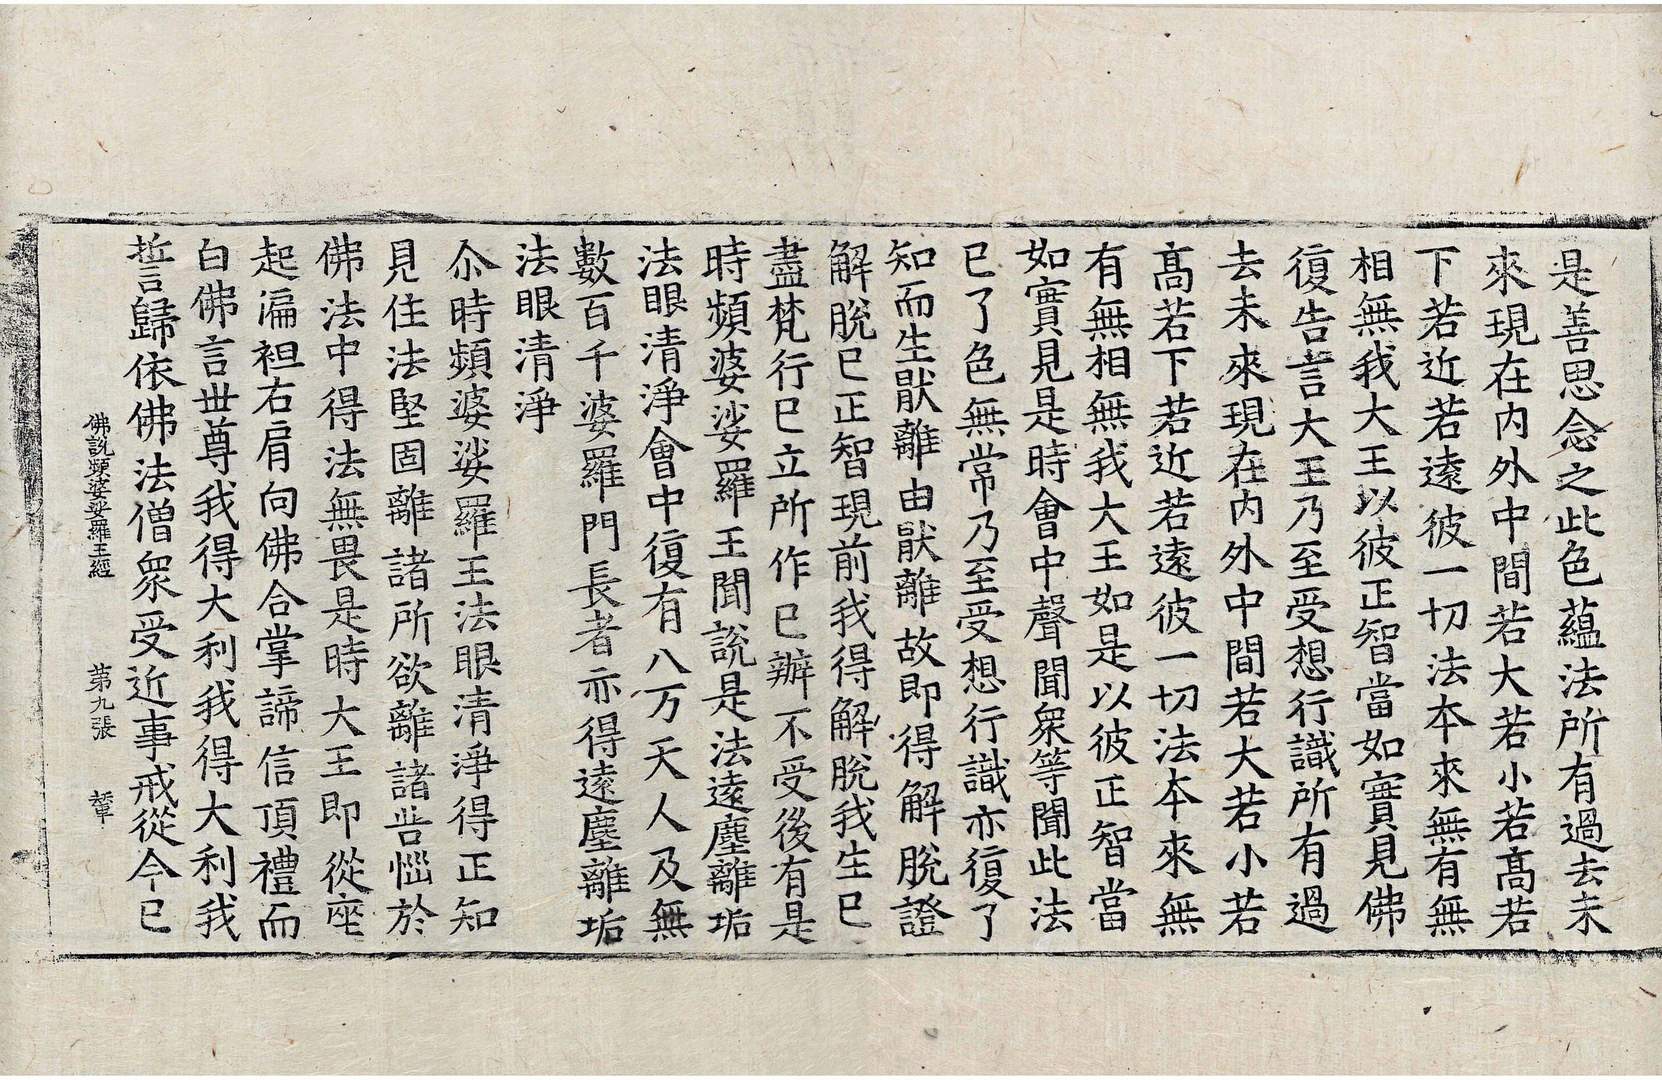 是善思念之此色蘊法所有過去未
來現在内外中間若大若小若髙若
下若近若遠彼一切法本來無有無
相無我大王以彼正智當如實見佛
復告言大王乃至受想行識所有過
去未來現在内外中間若大若小若
髙若下若近若遠彼一切法本來無
有無相無我大王如是以彼正智當
如實見是時會中聲聞衆等聞此法
已了色無常乃至受想行識亦復了
知而生猒離由猒離故即得解脫證
解脫已正智現前我得解脫我生已
盡梵行已立所作已辦不受後有是
時頻婆娑羅王聞說是法遠塵離垢
法眼清淨會中復有八万天人及無
數百千婆羅門長者亦得遠塵離垢
法眼清淨
尒時頻婆娑羅王法眼清淨得正知
見住法堅固離諸所欲離諸苦惱於
佛法中得法無畏是時大王即從座
起偏袒右肩向佛合掌諦信頂禮而
白佛言世尊我得大利我得大利我
誓歸依佛法僧衆受近事戒從今已
佛說頻婆娑羅王經 第九張